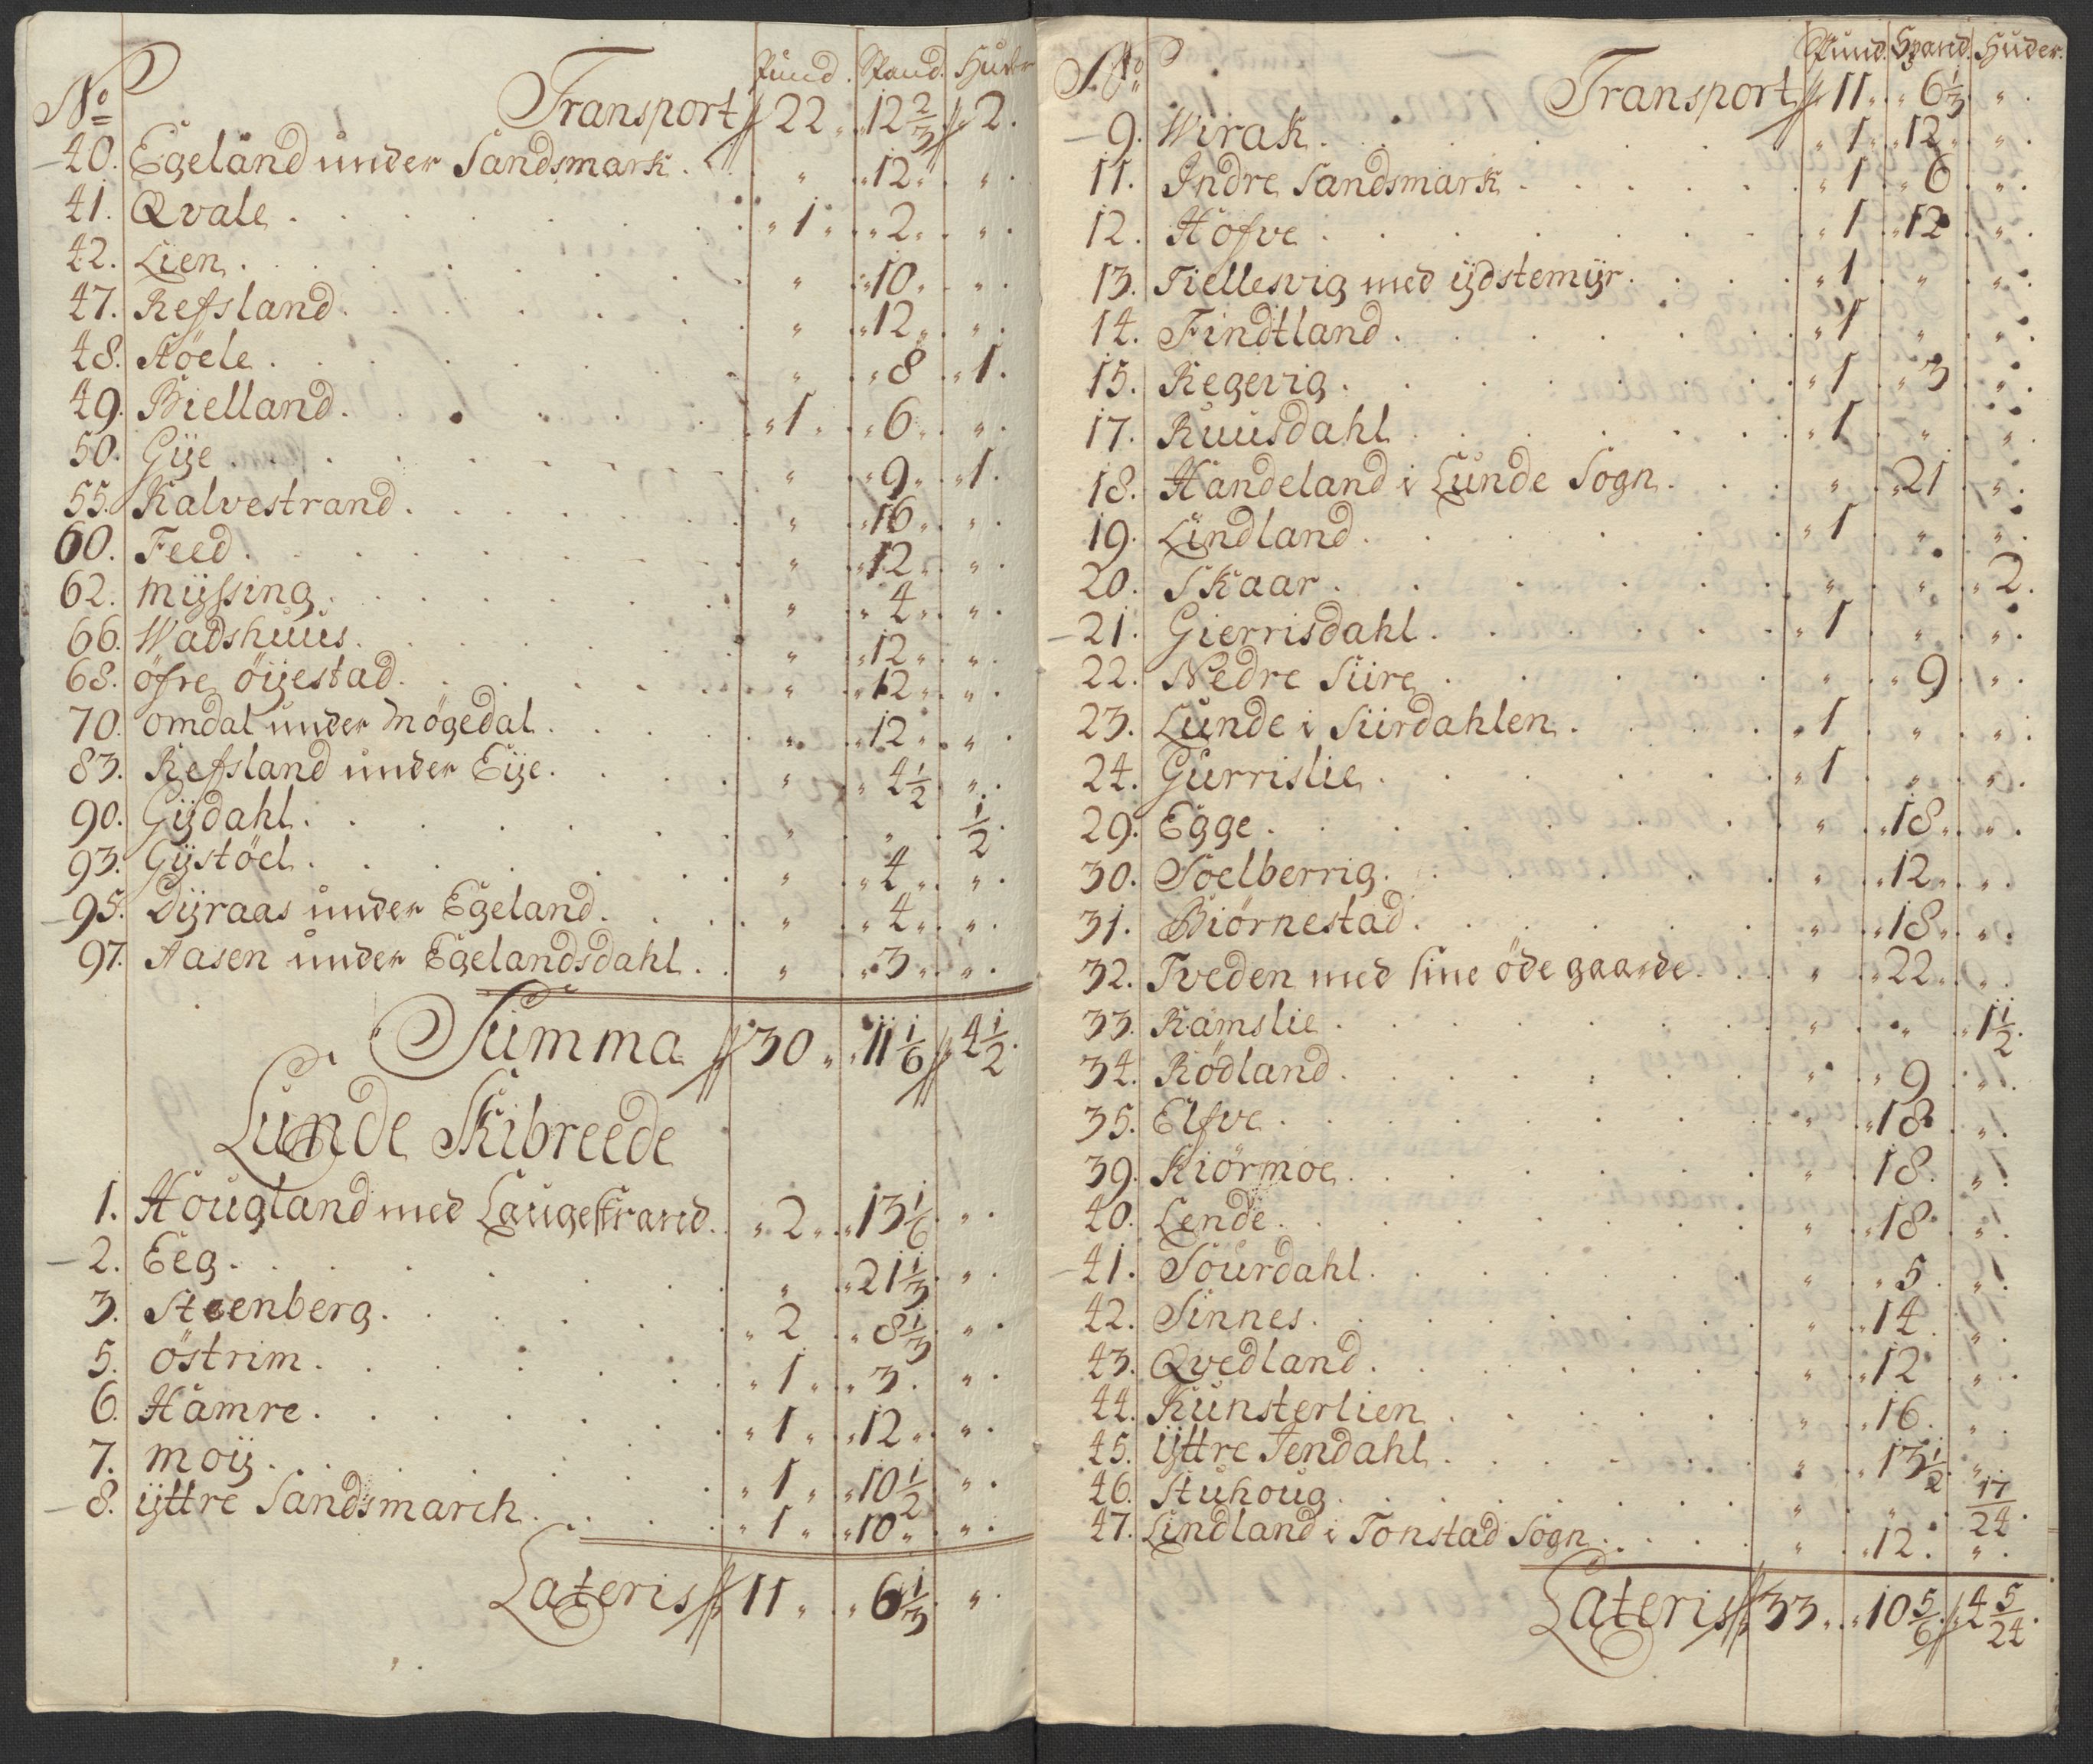 Pund. Spand. Huder
No Transport 22 „ „12 2/3 2.
40. Egeland under Sandsmark. „ „12„ „
41. Qvale „1„ „2„ „
42. Lien „ „10„ „
47. Refsland „ „12„ „
48. Støele „ „8 „1.
49. Bielland „1„ „6„ „
50. Gije „ „9„ „1.
55. Kalvestrand „ „16„ „
60. Feed „ „12„ „
62. Mÿssing „ „4„ „
66. Wadshuus „ „12„ „
68. öfre öÿestad „ „12„ „
70. Omdal under Mögedal „ „12„ „
83. Refsland under Eÿe „ „4 1/2 „
90. Gÿdahl „ „ 1/2
93. Gÿstöel „ „4„ „
95. Dÿraas under Egeland „ „4„ „
97. Aasen under Egelandsdahl „ „3„ „
Summa 30„ „11 1/6 4 1/2
Lunde Skibreede
1. Hougland med Laugestrand „2„ „13 1/6 „
2. Eeg „ „21 1/3 „
3. Steenberg „2 „8 1/3 „
5. östrim „1„ „3. „
6. Hamre „1„ „12„ „
7. Moÿ „1„ „10 1/2 „
8. ÿttre Sandsmarch „1„ „10„ „
Lateris 11„ „6 1/3 „
Pund. Spand. Huder.
No Transport 11„ „6 1/3 „
9. Wirak „1„ „12„ „
11. Indre Sandsmark „1 „6 „
12. Hofve „1 „12 „
13. Fiellesvig med ÿdstemÿr „1 „ „
14. Findtland „1 „ „
15. Regevig „1 „3 „
17. Ruusdahl „1 „ „
18. Handeland i Lunde Sogn „ „21 „
19. Lindland „1 „ „
20. Skaar „ „ „2.
21. Gierrisdahl „1 „ „
22. Nedre Siire „ „9 „
23. Lunde i Siirdahlen „1 „ „
24. Gurrislie „1 „ „
29. Egge „ „18„ „
30. Soelberrig „ „12„ „
31. Biörnestad „ „18„ „
32. Tveden med sine öde gaarde „ „22„ „
33. Ramslie „ „ „1 1/2
34. Rödland „ „9 „
35. Elfve „ „18 „
39. Kiörmoe „ 18. „
40. Lende „ „18 „
41. Sourdahl „ „5. „
42. Sinnes „ „14. „
43. Qvedland „ „12 „
44. Kunsterlien „ „16. „
45. ÿttre Tendahl „ „13 1/2 „
46. Stuhoug „ „ 17/24
47. Lindland i Tonstad Sogn „ „12. „
Lateris 33„ „10 5/6 4 5/24